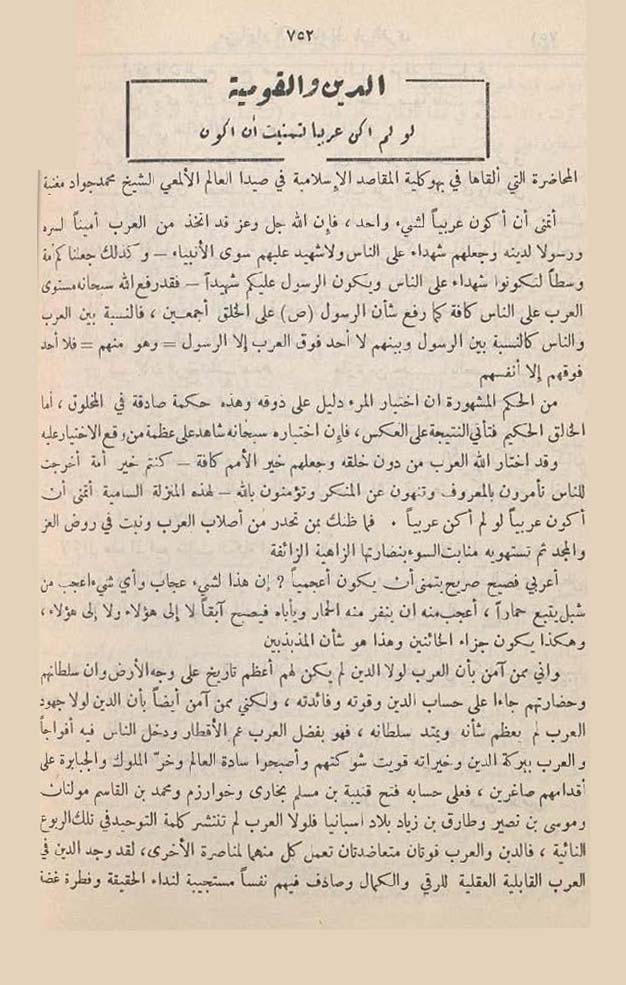 ٧٥٢
الدين والقومية
لو لم اكن عربيا لتمنيت أن اكون
المحاضرة التي ألقاها في بهو كلية المقاصد الإسلامية في صيدا العالم الألمعي الشيخ محمد جواد مغنية
أتمنى أن أكون عربياً لشيء واحد ، فإن الله جل وعز قد اتخذ من العرب أميناً لسره
ورسولا لدينه وجعلهم شهداء على الناس ولا شهيد عليهم سوى الأنبياء – وكذلك جعلناكم أمة
وسطاً لتكونوا شهداء على الناس ويكون الرسول عليكم شهيداً – فقد رفع الله سبحانه مستوى
العرب على الناس كافة كما رفع شأن الرسول (ص) على الخلق أجمعين ، فالنسبة بين العرب
والناس كالنسبة بين الرسول وبينهم لا أحد فوق العرب إلا الرسول = وهو منهم = فلا أحد
فوقهم إلا أنفسهم
من الحكم المشهورة ان اختيار المرء دليل على ذوقه وهذه حكمة صادقة في المخلوق ، أما
الخالق الحكيم فتأتي النتيجة على العكس ، فإن اختياره سبحانه شاهد على عظمة من وقع الاختيار عليه
وقد اختار الله العرب من دون خلقه وجعلهم خير الأمم كافة – كنتم خير أمة أخرجت
للناس تأمرون بالمعروف وتنهون عن المنكر وتؤمنون بالله – لهذه المنزلة السامية أتمنى أن
أكون عربياً لو لم أكن عربياً . فما ظنك بمن تحدر من أصلاب العرب ونبت في روض العز
والمجد ثم تستهويه منابت السوء بنضارتها الزاهية الزائفة
أعربي فصيح صريح يتمنى أن يكون أعجمياً ? إن هذا لشيء عجاب وأي شيء اعجب من
شبل يتبع حماراً ، أعجب منه ان ينفر منه الحمار ويأباه فيصبح آبقاً لا إلى هؤلاء ولا إلى هؤلاء ،
وهكذا يكون جزاء الخائنين وهذا هو شأن المذبذبين
واني ممن آمن بأن العرب لولا الدين لم يكن لهم أعظم تاريخ على وجه الأرض وان سلطانهم
وحضارتهم جاءا على حساب الدين وقوته وفائدته ، ولكني ممن آمن أيضاً بأن الدين لولا جهود
العرب لم يعظم شأنه ويمتد سلطانه ، فهو بفضل العرب عم الأقطار ودخل الناس فيه أفواجاً
والعرب ببركة الدين وخيراته قويت شوكتهم وأصبحوا سادة العالم وخرّ الملوك والجبابرة على
أقدامهم صاغرين ، فعلى حسابه فتح قتيبة بن مسلم بخارى وخوارزم ومحمد بن القاسم مولتان
وموسى بن نصير وطارق بن زياد بلاد اسبانيا فلولا العرب لم تنتشر كلمة التوحيد في تلك الربوع
النائية ، فالدين والعرب قوتان متعاضدتان تعمل كل منهما لمناصرة الأخرى ، لقد وجد الدين في
العرب القابلية العقلية للرقي والكمال وصادف فيهم نفساً مستجيبة لنداء الحقيقة وفطرة غضة